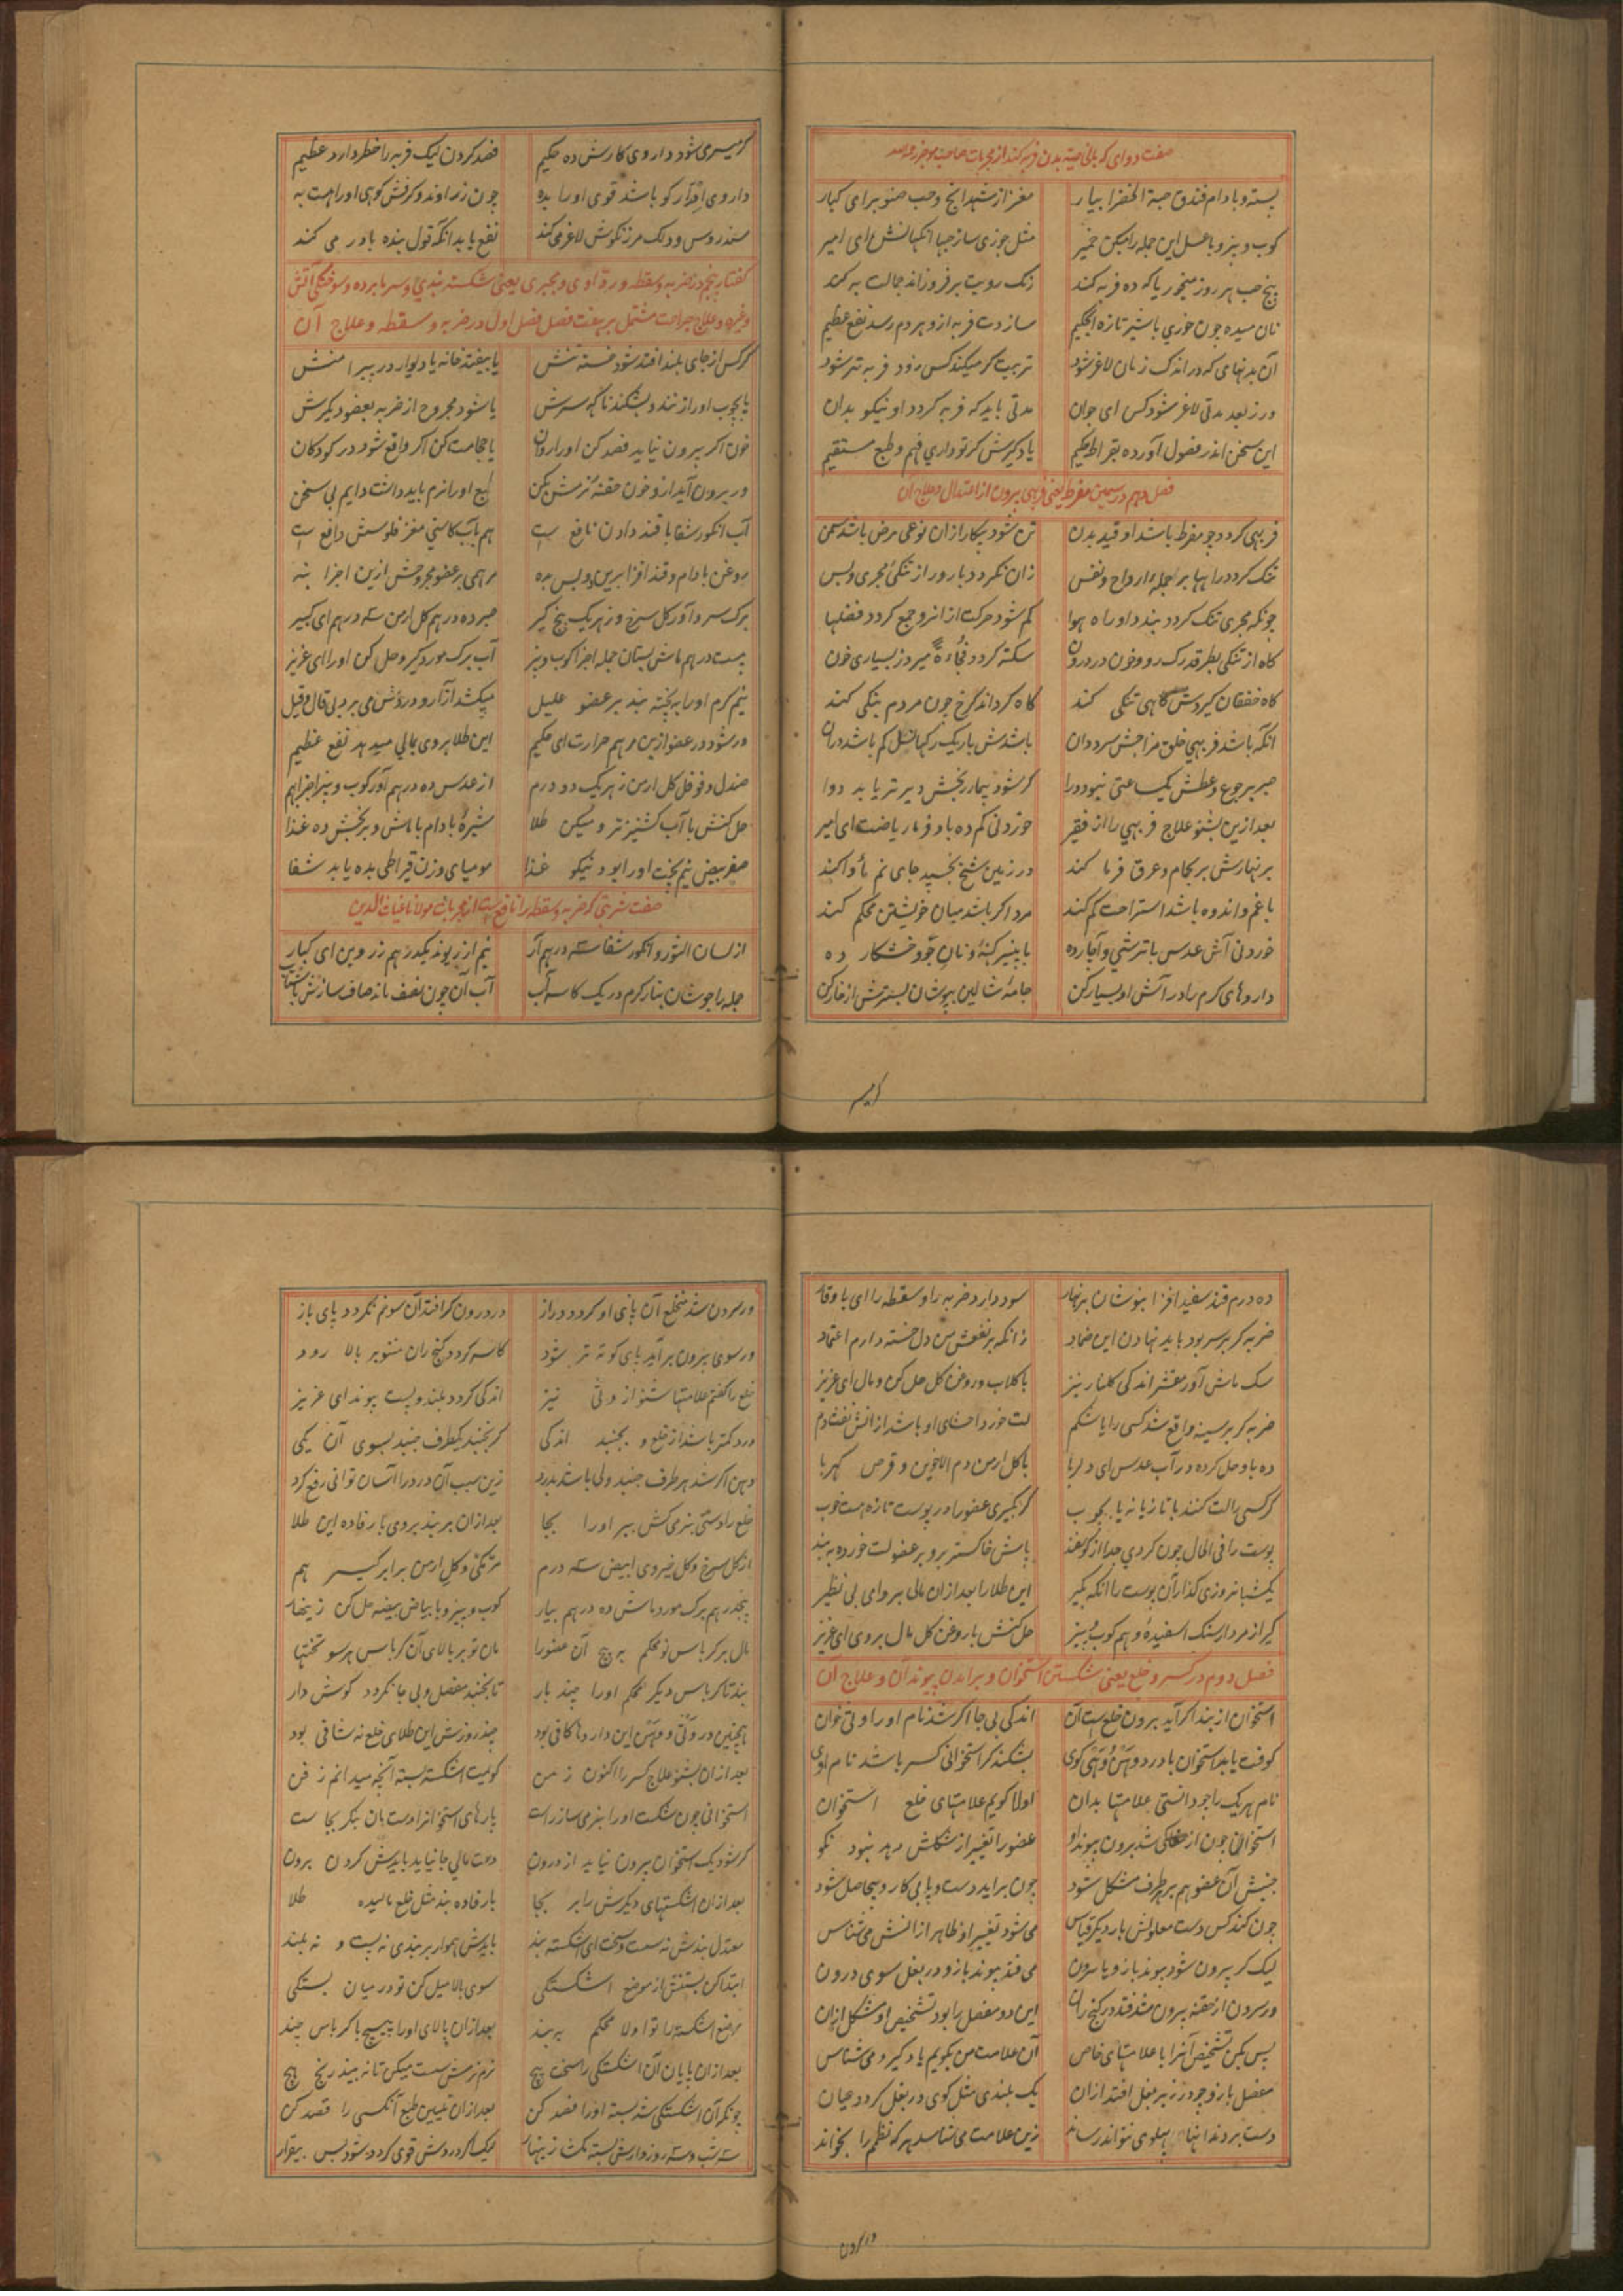 صفت دوای که بالخاصیته بدن فربه کند از مجربات صاحب موجز رحمه الله
پسته و بادام فندق حبة الخضرا بیار مغز از شهدانج و حب صنوبر ای کبار
کوب و بیز و با عسل این جمله را میکن خمیر مثل جوزی ساز حبها انکهانش ای امیر
پنج حب هر روز میخور یا که ده فربه کند رنک رویت برفروزاند جمالت به کند
نان میده چون خوری با شیر تازه ای حکیم سازدت فربه ازو هر دم رسد نفع عظیم
آن بدنهای که در اندک زمان لاغر شود تربیت کر میکند کس زود فربه تر شود
ور ز بعد مدتی لاغر شود کس ای جوان مدتی باید که فربه کردد او نیکو بدان
این سخن اندر فصول آورده بقراط حکیم یاد کیرش کر تو داری فهم و طبع مستقیم
فصل دهم در سمن مفرط یعنی فربهی بیرون از اعتدال و علاج آن
فربهی کردد چو مفرط باشد او قید بدن تن شود بیکار ازان نوعی مرض باشد سمن
تنک کردد راهها بر جمله ارواح و نفس زان نکردد بارور از تنکی مجری و بس
چونکه مجری تنک کردد بندد او راه هوا کم شود حرکت ازانرو جمع کردد فضلها
کاه از تنکی بطرقد رک رود خون در درون سکته کردد فجاءة میرد ز بسیاری خون
کاه خفقان کیردش کاهی تنکی کند کاه کرداند کرخ چون مردم بنکی کند
انکه باشد فربهی خلق مزاجش سرد دان باشدش باریک رکها نسل کم باشد دران
صبر بر جوع و عطش یکساعتی نبود ورا کر شود بیمار رنجش دیرتر یابد دوا
بعد ازین بشنو علاج فربهی را از فقیر خوردنی کم ده باو فرما ریاضت ای امیر
بر نهارش بر بحمام و عرق فرما کند در زمین شخ بخسپد جای نم مأوا کند
با غم و اندوه باشد استراحت کم کند مرد اکر باشد میان خویشتن محکم کند
خوردنی آش عدس با ترشی و آچار ده با پنیر کهنه و نان جو و خشکار ده
داروهای کرم را در آتش او بسیار کن جامهٔ شالین بپوشان بسترش از خار کن
کر میسری شود داروی کارش ده حکیم فصد کردن لیک فربه را خطر دارد عظیم
داروی ادرار کو باشد قوی او را بده چون زراوند و کرفش کوهی او را هست به
سندروس و ولک مرزنکوش لاغر می کند نفع یابد انکه قول بنده باور می کند
کفتار پنجم در ضربه و سقطه و رداوی و مجبری یعنی شکسته بندی و سرما برده و سوختکی آتش
و غیره و علاج جراحت مشتمل بر هفت فصل فصل اول در ضربه و سقطه و علاج آن
کر کس از جای بلند افتد شود خسته تنش یا بیفتد خانه یا دیوار در پیرامنش
یا بچوب او را زنند و بشکند ناکه سرش یا شود مجروح از ضربه بعضو دیکرش
خون اکر بیرون نیاید فصد کن او را روان یا حجامت کن اکر واقع شود در کودکان
ور برون آید ازو خون حقنهٔ نرمش بکن طبع او را نرم باید داشت دایم بی سخن
آب انکور شفا با قند دادن نافع است هم بآب کاسنی مغز فلوسش دافع است
روغن بادام و قند افزا برین و پس بده مرهمی بر عضو مجروحش ازین اجزا بنه
برک سرو آور کل سرخ و ز هر یک پنج کیر صبر ده درهم کل ارمن سه درهم ای کبیر
بیست درهم ماش بستان جمله اجزا کوب و بیز آب برک مورد کیر و حل کن او را ای عزیز
نیم کرم او را به پخته بند بر عضو علیل میکشد آزار و دردش می برد بی قال و قیل
ور شود در عضو ازین مرهم حرارت ای حکیم این طلا بر وی بمالی میدهد نفع عظیم
صندل و فوفل کل ارمن ز هر یک دو درم از عدس ده درهم آور کوب و بیز اجزا بهم
حل کنش با آب کشنیز تر و میکن طلا شیرهٔ بادام با ماش و برنجش ده غذا
صفر بیض نیم پخت او را بود نیکو غذا مومیای وزن قیراطی بده یابد شفا
صفت شربتی که ضربه و سقطه را نافع است از مجربات مولانا غیاث الدین
از لسان الثور و انکور شفا سه درهم آر نیم از ریوند یکدرهم ز روین ای کبار
جمله را جوشان بنار کرم در یک کاسه آب آب آن چون نصف ماند صاف سازش باشتاب
ده درم قند سفید افزا بنوشان بر نهار سود دارد ضربه را و سقطه را ای با وقار
ضربه کر بر سر بود باید نهادن این ضماد زانکه بر نفعش من دل خسته دارم اعتماد
سک ماش آور مقشر اندکی کلنار نیز با کلاب و روغن کل حل کن و مال ای عزیز
ضربه کر بر سینه واقع شد کسی را یا شکم لت خورد احشای او باشد ازانش نفث دم
ده باو حل کرده در آب عدس ای دلربا با کل ارمن دم الاخوین و قرص کهربا
کر کسی را لت کنند با تازیانه یا بچوب کر بکیری عضو او در پوست تازه هست خوب
پوست را فی الحال چون کردی جدا از کوسفند پاش خاکستر برو بر عضو لت خورده به بند
یکشبانروزی کذار آن پوست را انکه بکیر این طلا را بعد ازان مالی بر وای بی نظیر
کیر از مردارسنک اسفیده و هم کوب و بیز حل کنش با روغن کل مال بر وی ای عزیز
فصل دوم در کسر و خلع یعنی شکستن استخوان و برامدن پیوند آن و علاج آن
استخوان از بند اکر آید برون خلع است آن اندکی بی جا اکر شد نام او را وثی خوان
کوفت یابد استخوان با درد وهن و وهی کوی بشکند کر استخوانی کسر باشد نام اوی
نام هر یک را چو دانستی علامتها بدان اولا کویم علامتهای خلع استخوان
استخوانی چون از شد برون پیوند او عضو را تغییر از شکلش دهد نبود نکو
جنبش آن عضو هم بر هر طرف مشکل شود چون براید دست و پا بی کار و بیحاصل شود
چون کند کس دست معلولش بار دیکر قیاس می شود تغییر او ظاهر ازانش می شناس
لیک کر بیرون شود پیوند بازو یا سرون می فتد پیوند بازو در بغل سوی درون
ور سرون از حقنه بیرون شد فتد در کنج ران این دو مفصل را بود تشخیص او مشکل ازان
پس بکن تشخیص آنرا با علامتهای خاص آن علامت من بکویم یاد کیر و می شناس
مفصل بازو چو در زیر بغل افتد ازان یک بلندی مثل کوی در بغل کردد عیان
دست بردن پهلوی نتواند رساند زین علامت می شناسد هر که نظمم را بخواند
ور سرون شد منخلع آن پای او کردد دراز در درون کر افتد آن سو نم نکردد پای باز
ور سوی بیرون برآید پای کوته تر شود کاسه کردد کنج ران منتوبر بالا رود
خلع را کفتم علامتها شنو از وثی نیز اندکی کردد بلند و پست پیوند ای عزیز
درد کمتر باشد از خلع و بجنبد اندکی کر بجنبد یکطرف جنبد بسوی آن یکی
وهن اکر شد هر طرف جنبد ولی باشد بدرد زین سبب آن درد را آسان توانی رفع کرد
خلع را وستی بنرمی کش ببر او را بجا بعد ازان بر بند بر وی با رفاده این طلا
از کل سرخ و کل خیروی ابیض سه درم مرتکی و کل ارمن برابر کیر هم
پنجدرهم برک مورد ماش ده درهم بیار کوب و بیز و با بیاض بیضه حل کن زینهار
مال بر کرباس نو محکم به پیچ آن عضو را مان تو بر بالای آن کرباس هر سو تختها
بند تا کرباس دیکر محکم او را چند بار تا بجنبد مفصل و بی جا نکردد کوش دار
همچنین در وثی و وهن این داروها کافی بود چند روزش این طلای خلع نه شافی بود
بعد ازان بشنو علاج کسر را اکنون ز من کویمت اشکسته بسته آنچه میدانم ز فن
استخوانی چون شکست او را بنرمی ساز راست پارهای استخوانرا دست مان بنکر کجاست
کر شود یک استخوان بیرون نیاید از درون دست مالی جا نیاید بایدش کردن برون
بعد ازان اشکستهای دیکرش را بر بجا با رفاده بند مثل خلع مالیده طلا
معتدل بندش نه سست و سخت ای اشکسته بند بایدش هموار بر بندی نه پست و نه بلند
ابتدا کن بستنش از موضع اشکستکی سوی بالا میل کن تو در میان بستکی
موضع اشکسته را تو اولا محکم به بند بعد ازان بالای او را پیچ با کرباس چند
بعد ازان پایان آن اشکستکی را سخت پیچ نرم نرمش سست میکن تا نه بیند رنج هیچ
چونکه آن اشکستکی شد بسته او را فصد کن بعد ازان تلیین طبع آنکسی را قصد کن
سه شب و سه روز وارش بسته مکشا زینهار لیک اکر دردش قوی کردد شود بس بیقرار